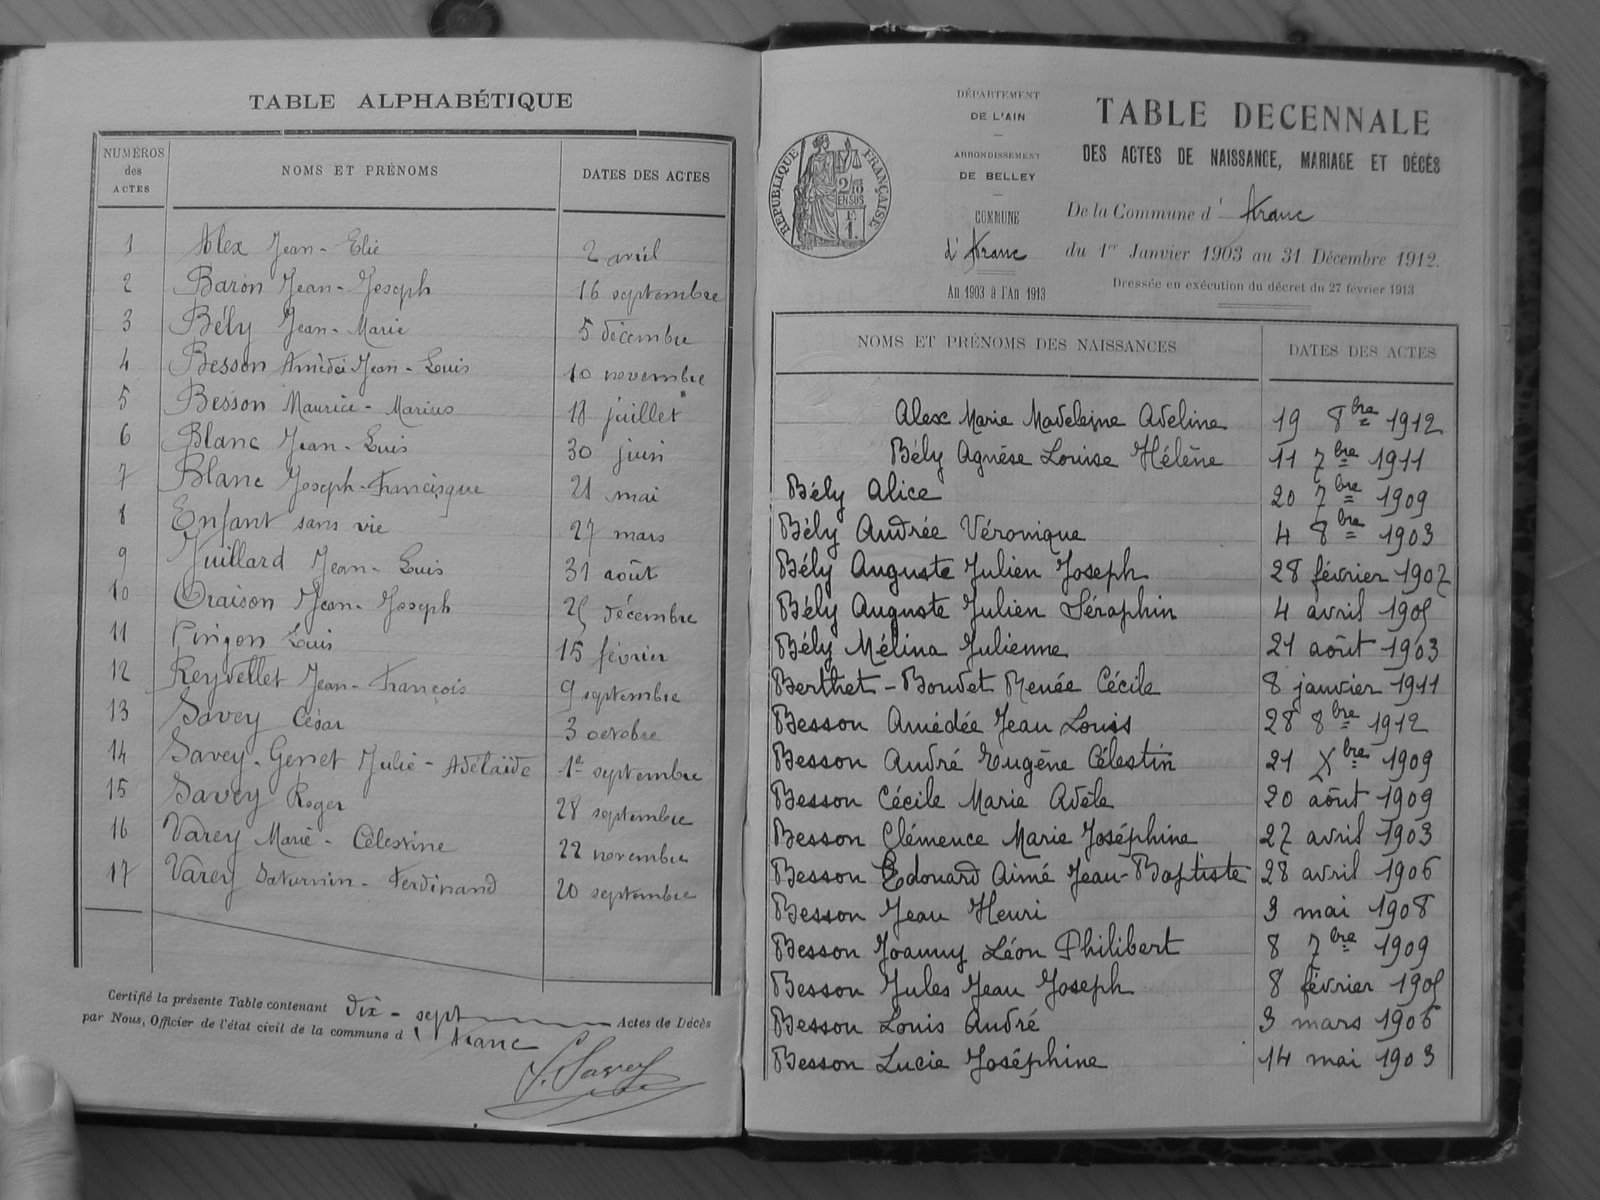 TABLE ALPHABÉTIQUE
NUMÉROS des ACTES NOMS ET PRÉNOMS DATES DES ACTES
1 Alex Jean-Elie 2 avril
2 Baron Jean-Joseph 16 septembre
3 Bély Jean-Marie 5 décembre
4 Besson Amédée Jean-Louis 10 novembre
5 Besson Maurice-Marius 18 juillet
6 Blanc Jean-Louis 30 juin
7 Blanc Joseph-Francisque 21 mai
8 Enfant sans vie 27 mars
9 Juillard Jean-Louis 31 août
10 Oraison Jean-Joseph 25 décembre
11 Pingon Louis 15 février
12 Reyvellet Jean-François 9 septembre
13 Savey César 3 octobre
14 Savey-Genet Julie-Adélaïde 1er septembre
15 Savey Roger 28 septembre
16 Varey Marie-Célestine 22 novembre
17 Varey Saturnin-Ferdinand 20 septembre
Certifié la présente Table contenant dix-sept Actes de Décès
par Nous, Officier de l'état civil de la commune d'Aranc
J. Savey
RÉPUBLIQUE FRANÇAISE
DÉPARTEMENT
DE L'AIN
ARRONDISSEMENT
DE BELLEY
COMMUNE
d'Aranc
An 1903 à l'An 1913
TABLE DECENNALE
DES ACTES DE NAISSANCE, MARIAGE ET DÉCÈS
De la Commune d'Aranc
du 1er Janvier 1903 au 31 Décembre 1912.
Dressée en exécution du décret du 27 février 1913
NOMS ET PRÉNOMS DES NAISSANCES DATES DES ACTES
Alex Marie Madeleine Adeline 19 8bre 1912
Bély Agnèse Louise Hélène 11 7bre 1911
Bély Alice 20 7bre 1909
Bély Audrée Véronique 4 8bre 1903
Bély Auguste Julien Joseph 28 février 1907
Bély Auguste Julien Séraphin 4 avril 1905
Bély Mélina Julienne 21 août 1903
Berthet-Boudet Renée Cécile 8 janvier 1911
Besson Amédée Jean Louis 28 8bre 1912
Besson André Eugène Célestin 21 Xbre 1909
Besson Cécile Marie Adèle 20 août 1909
Besson Clémence Marie Joséphine 27 avril 1903
Besson Edouard Aimé Jean-Baptiste 28 avril 1906
Besson Jean Henri 3 mai 1908
Besson Joanny Léon Philibert 8 7bre 1909
Besson Jules Jean Joseph 8 février 1905
Besson Louis André 3 mars 1906
Besson Lucie Joséphine 14 mai 1903